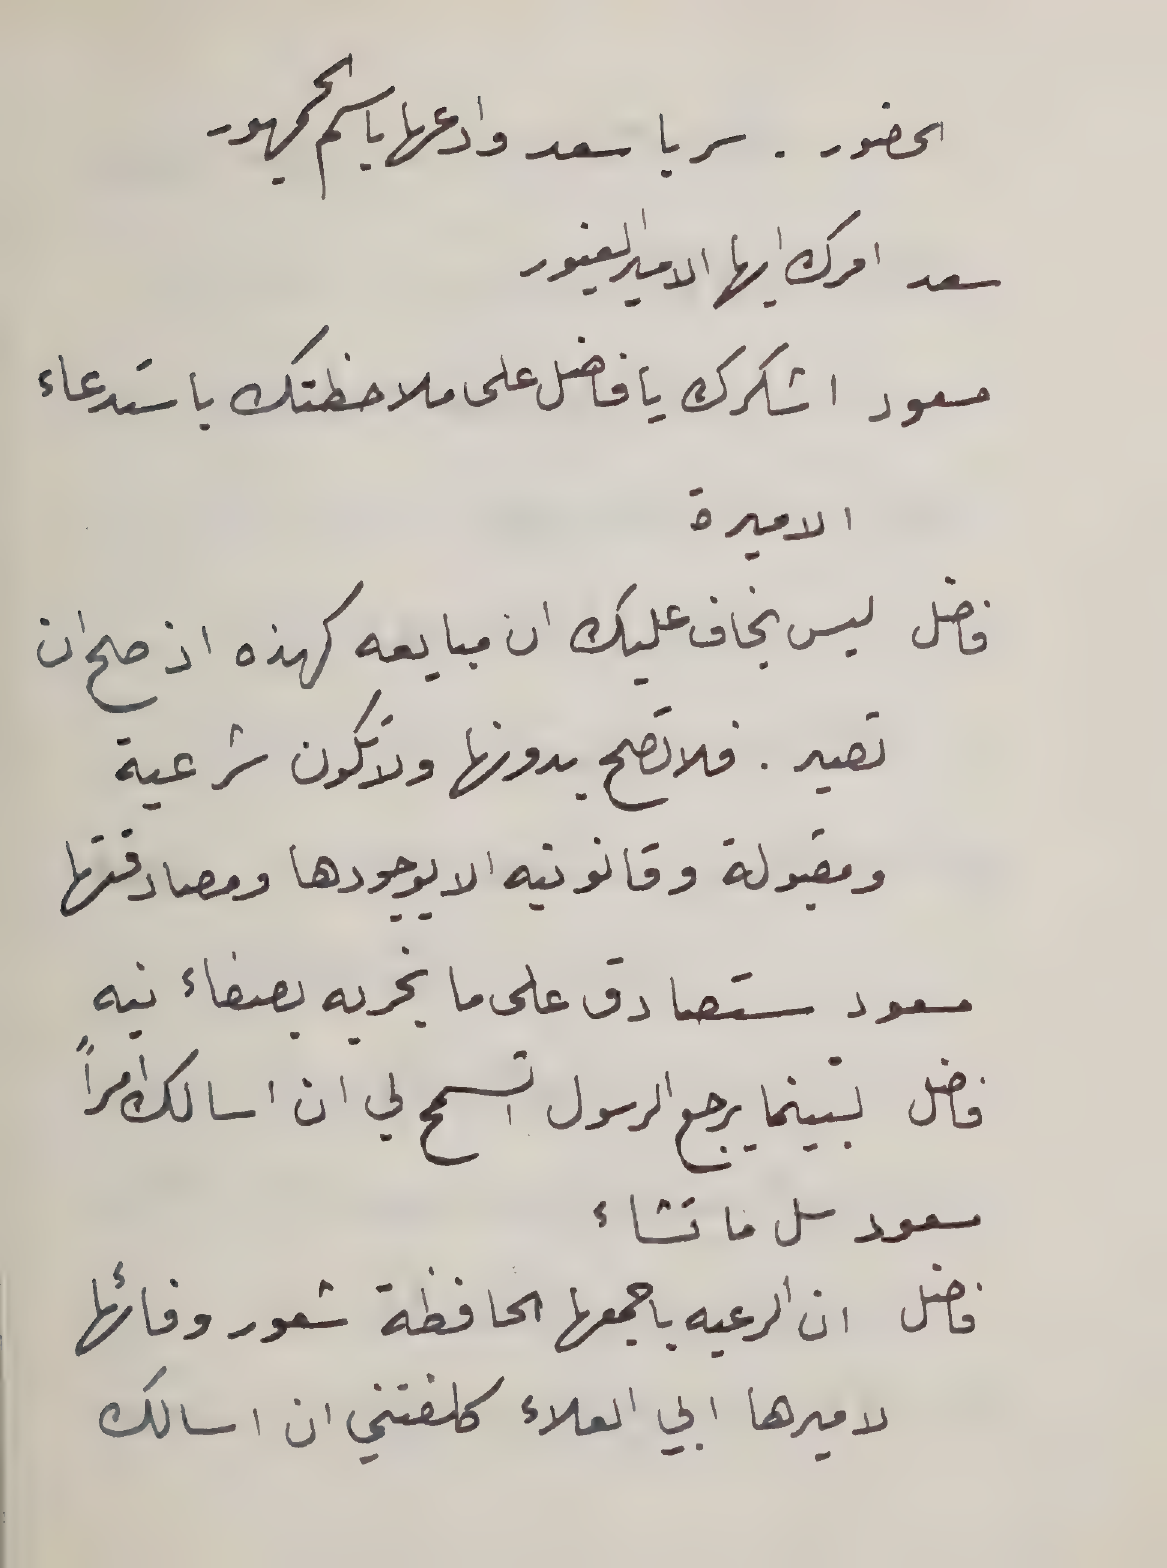 الحضور . سر يا سعد وادعها باسم الجمهور
سعد امرك ايها الامير الغيور
مسعود اشكرك يا فاضل على ملاحظتك باستدعاء
الاميرة
فاضل ليس بخاف عليك ان مبايعه كهذه اذ صح ان
تصير . فلا تصح بدونها ولا تكون شرعية
ومقبولة وقانونيه الا بوجودها ومصادقتها
مسعود ستصادق على ما نجريه بصفاء نيه
فاضل لبينما يرجع الرسول اتسمح لي ان اسالك امراً
مسعود سل ما تشاء
فاضل ان الرعيه باجمعها الحافظة شعور وفائها
لاميرها ابي العلاء كلفتني ان اسالك